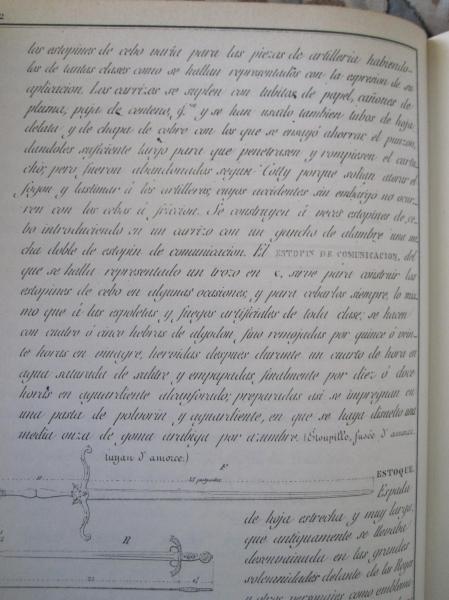 2
los estopines de cebo varia para las piezas de artilleria habiendo-
los de tantas clases como se hallan representados con la espresion de su
aplicacion. Los carrizos se suplen con tubitos de papel, cañones de
pluma, paja de centeno, &.ª y se han usado tambien tubos de hoja
delata y de chapa de cobre con los que se ensayó ahorrar el punzon,
dandoles suficiente largo para que penetrasen y rompiesen el cartu-
cho; pero fueron abandonados segun Cotty porque solian atorar el
fogon y lastimar á los artilleros, cuyos accidentes sin embargo no ocur-
ren con los cebos á friccion. Se construyen á veces estopines de ce-
bo introduciendo en un carrizo con un gancho de alambre una me-
cha doble de estopin de comunicacion. El ESTOPIN DE COMUNICACION, del
que se halla representado un trozo en c, sirve para construir los
estopines de cebo en algunas ocasiones, y para cebarlos siempre, lo mis-
mo que á las espoletas y fuegos artificiales de toda clase; se hacen
con cuatro ó cinco hebras de algodon fino remojadas por quince ó vein-
te horas en vinagre, hervidas despues durante un cuarto de hora en
agua saturada de salitre y empapadas finalmente por diez ó doce
horas en aguardiente alcanforado; preparadas asi se impregnan en
una pasta de polvorin y aguardiente, en que se haya disuelto una
media onza de goma arabiga por azumbre. (Etoupille, fusée d'amorce,
tuyau d'amorce.)
F
ESTOQUE.
Espada
de hoja estrecha y muy larga,
que antiguamente se llevaba
R
desenvainada en las grandes
solemnidades delante de los Reyes
y otros personajes como emblema